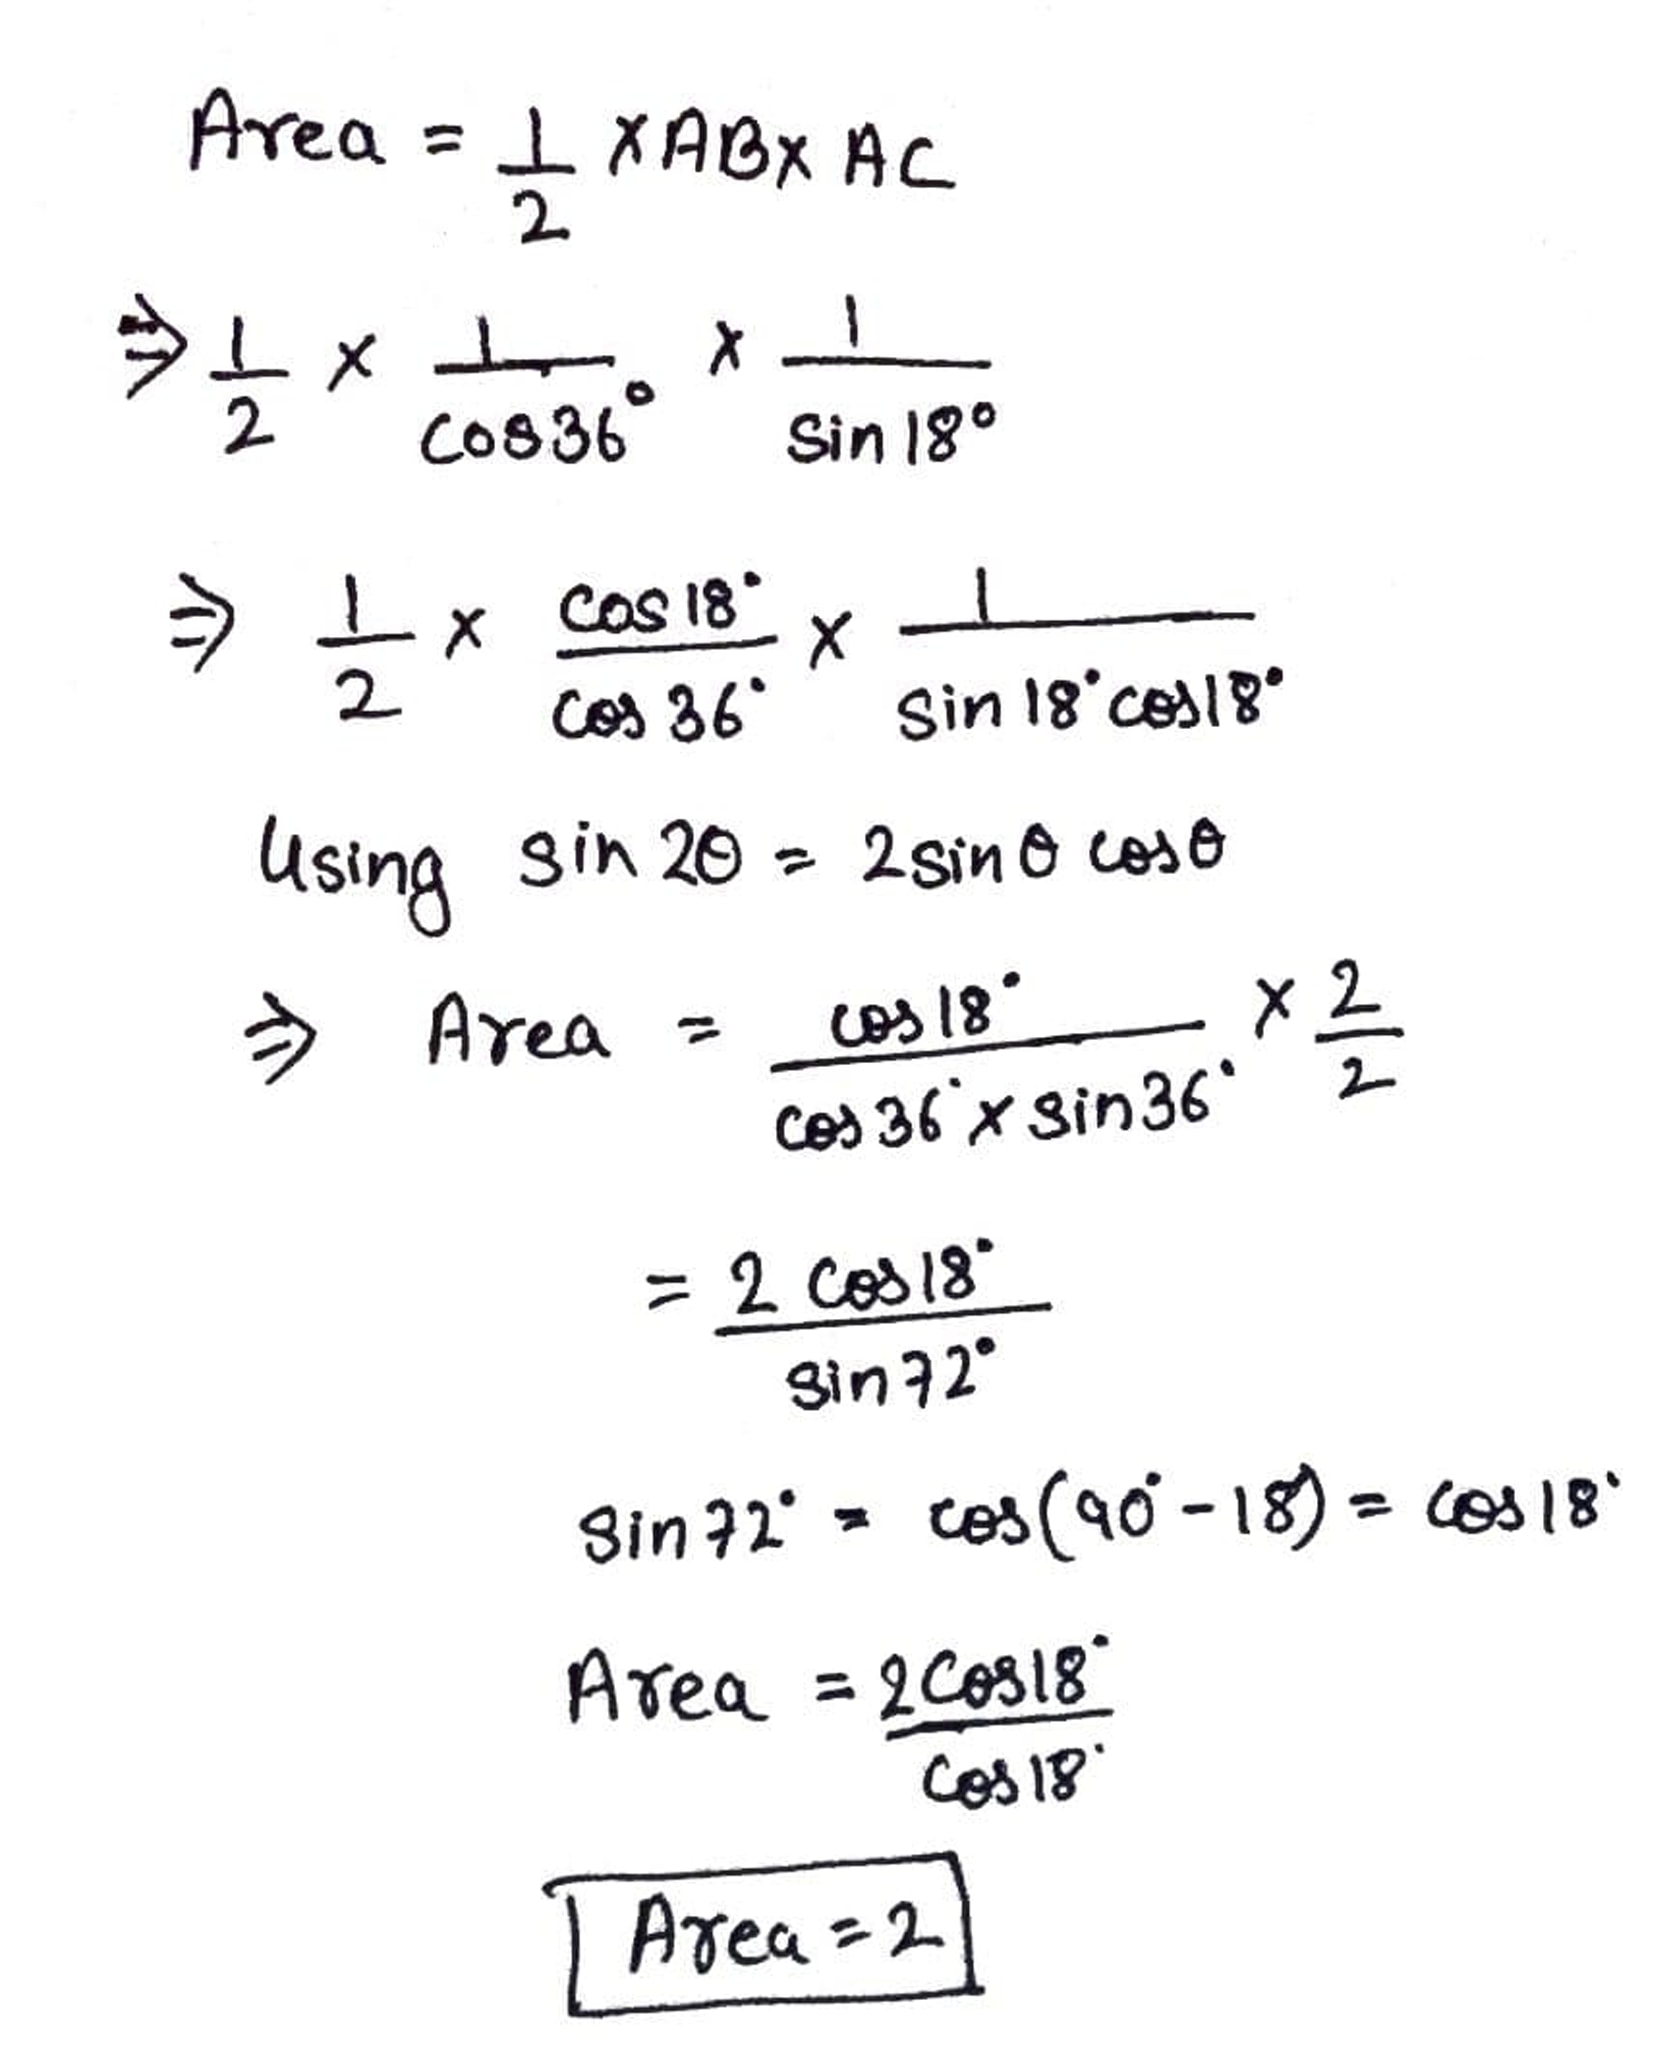 Area = 1/2 × AB × AC
⇒ 1/2 × 1/cos36° × 1/sin18°
⇒ 1/2 × cos18°/cos36° × 1/(sin18° cos18°)
Using sin2θ = 2sinθ cosθ
⇒ Area = cos18°/(cos36° × sin36°) × 2/2
= 2cos18°/sin72°
sin72° = cos(90° - 18) = cos18°
Area = 2cos18°/cos18°
Area = 2